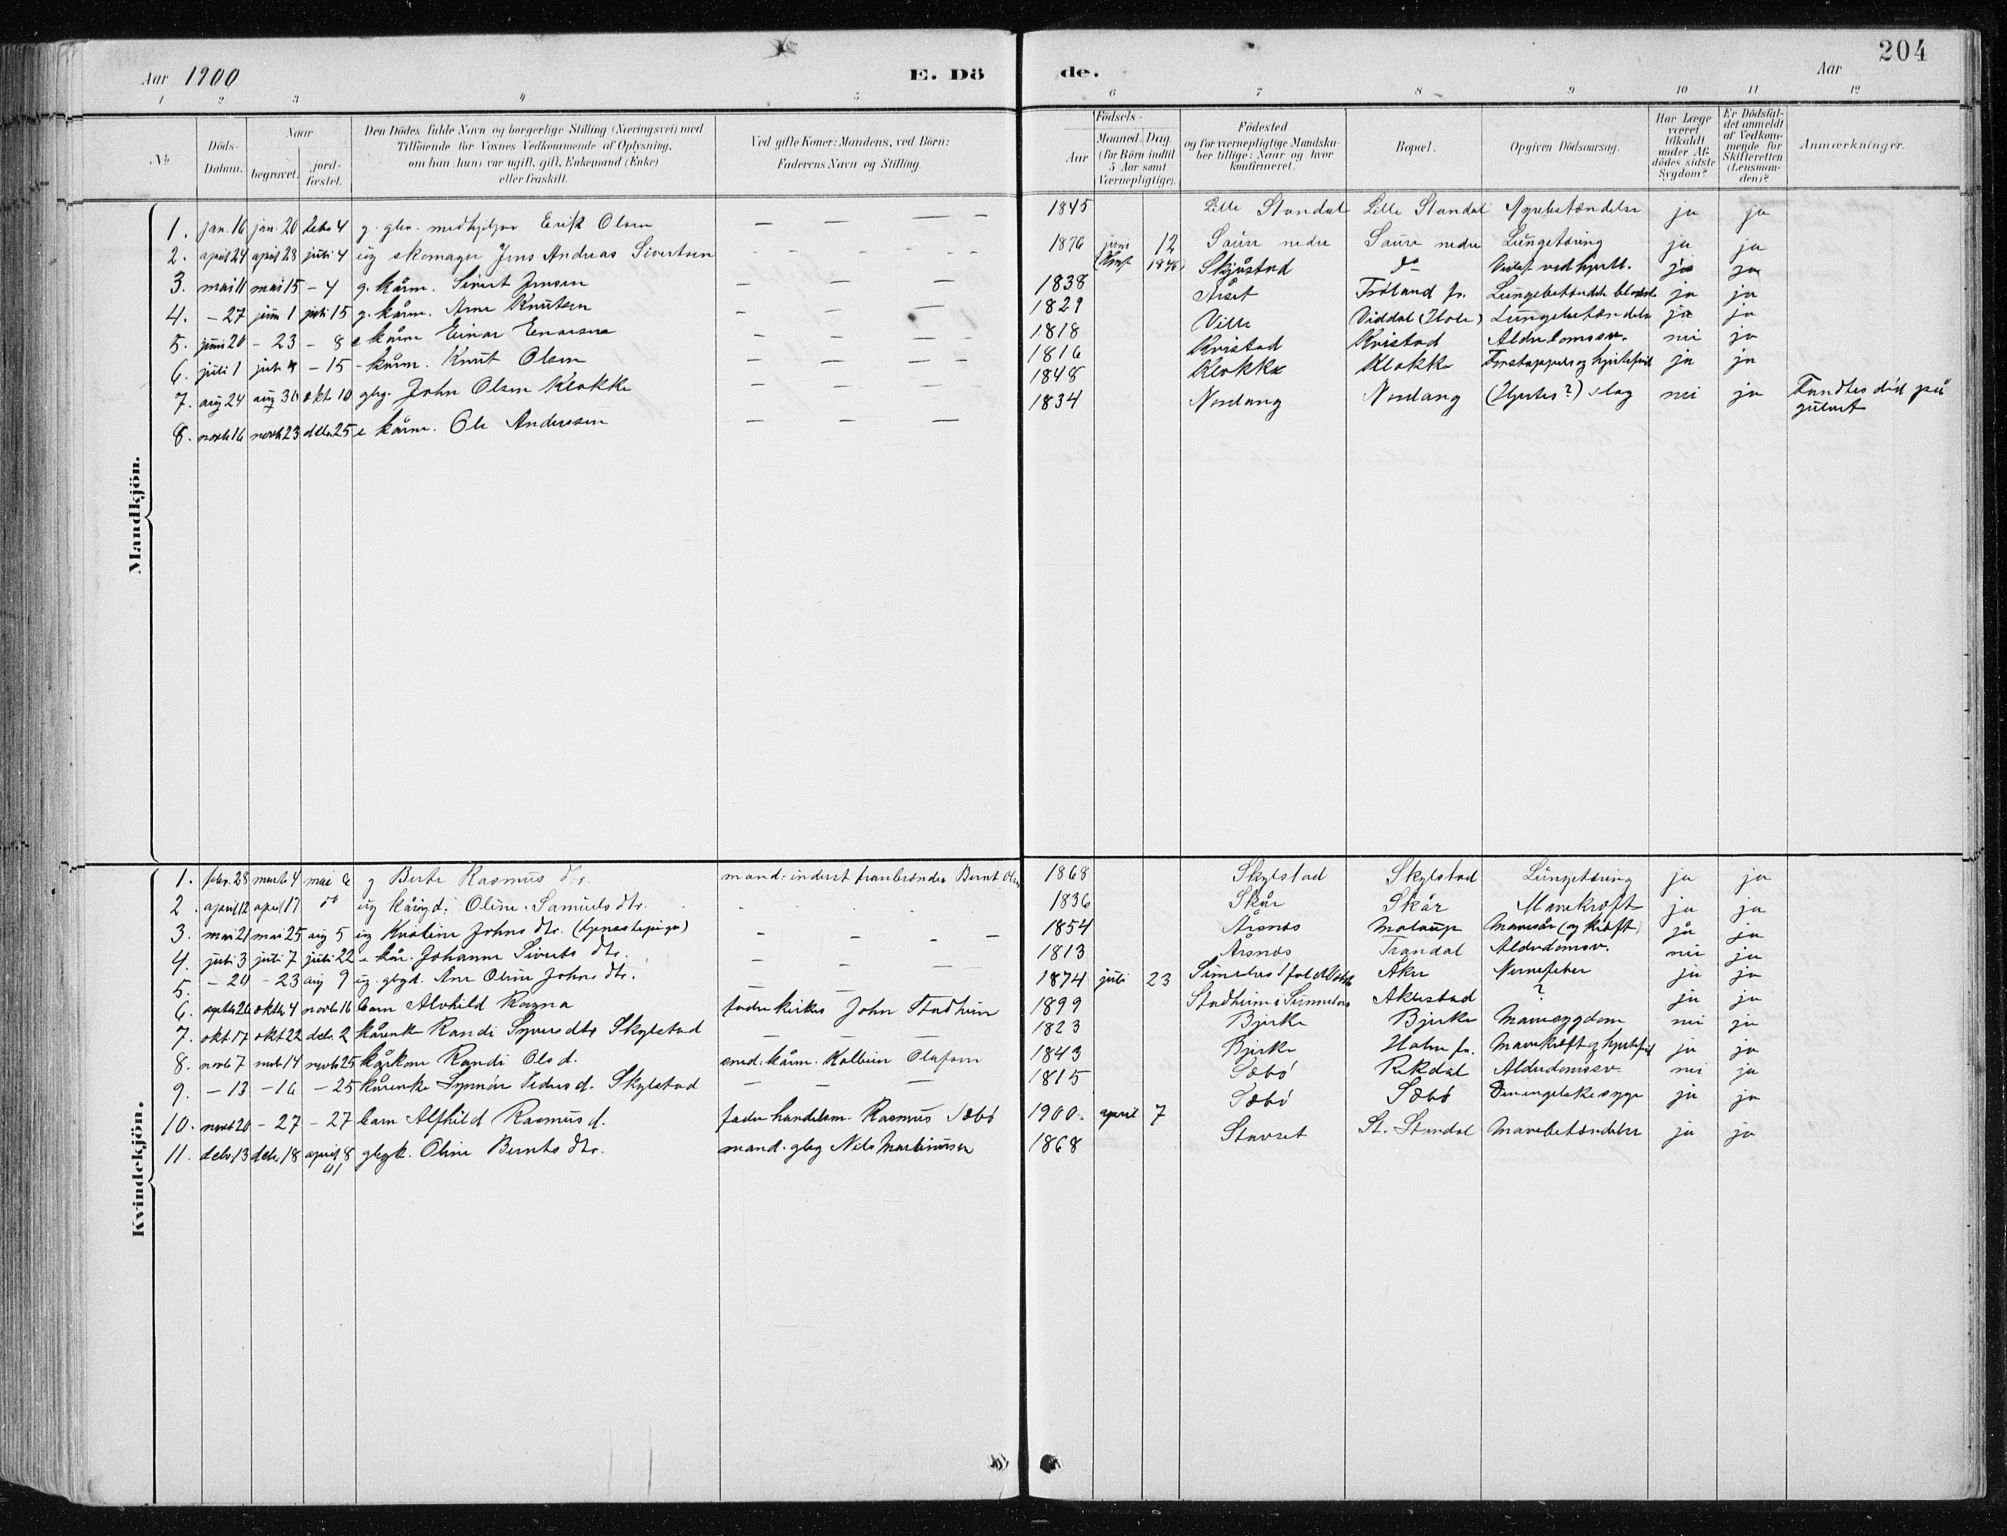 204
Aar 1900 E. Dö de. Aar
1 2 3 4 5 6 7 8 9 10 11 12
No
Döds-Datum.
Naar begravet. jordfæstet.
Den Dödes fulde Navn og borgerlige Stilling (Næringsvei) med Tilföiende for Voxnes Vedkommende af Oplysning, om han (hun) var ugift, gift, Enkemand (Enke) eller fraskilt.
Ved gifte Koner: Mandens, ved Börn: Faderens Navn og Stilling.
Födsels-
Aar Maaned. Dag. (for Börn indtil 5 Aar samt Værnepligtige).
Födested og for værnepligtige Mandskaber tillige: Naar og hvor konfirmeret.
Bopæl.
Opgiven Dödsaarsag.
Har Læge været tilkaldt under Afdödes sidste Sygdom?
Er Dödsfaldet anmeldt af Vedkommende for Skifteretten (Lensmanden)?
Anmærkninger.
Mandkjön.
1. jan. 16 jan. 26 debr 4 g. gbr. medhjelper Erik Olsen — — — — 1845 Lille Standal Lille Standal Nyrebetændelse ja ja
2. april 24 april 28 juli 4 ug skomager Jens Andreas Sivertsen — — — — 1876 juni 12 Saure nedre Saure nedre Lungetæring ja ja
3. mai 11 mai 15 - 4 g. kårm. Sivert Jensen — — — — 1838 Skjåstad do ved hjert. ja ja
4. - 27 juni 1 juli 15 g. kårm. Arne Knutsen — — — 1829 Årset Frøland fr. Lungebetændelse ja ja
5. juni 20 - 23 - 8 e kårm Einar Einarsen — — — 1818 Ville Viddal (Hole) Lungebetændelse ja ja
6. juli 1 juli - 15 - kårm. Knut Olsen — — — — 1816 Kvistad Kvistad Alderdomssv. nei ja
7. aug 24 aug 30 okt. 10 gbg. John Olsen Klokke — — — — 1848 Klokke Klokke og hjertefeil ja ja
8. novb 16 novb 23 debr 25 e kårm. Ole Anderssen — — — — 1834 Nordang Nordang (Hjertes?) slag nei ja Fandtes död på gulvet
Kvindekjön.
1. febr. 28 marts 4 mai 6 g Berte Rasmus dtr. mand: inderst Bernt Olsen 1868 Skylstad Skylstad Lungetæring ja ja
2. april 12 april 17 do ug kårgd: Oline Samuels dtr. - - - 1836 Skår Skår Mavekræft ja ja
3. mai 21 mai 25 aug 5 ug Kristine Johns dtr. (tjenestepige) — — — — 1854 Årsnes Molaup Mavesår (og kræft) ja ja
4. juli 3 juli 7 juli 22 e kår. Johanne Siverts dtr. — — — 1813 Årsnes Trandal Alderdomsv. nei ja
5. - 20 - 23 aug 9 ug. gbgd. Ane Oline Johns dtr. — — 1874 juli 23 Aker Nervefeber ja ja
6. septbr 26 oktbr 4 novb 16 barn Alvhild Ragna fader kirkes. John Stadheim 1899 Stadheim i Sunnelven Aklestad ? ja ja
7. okt. 17 okt 22 debr. 2 kårenke Randi Syvers dtr Skylstad — — — 1823 Bjerke Bjerke Mavesygdom nei ja
8. novb 7 novb 14 novb 25 kårkone Randi Ols d. smed: kårm. Kolbein Olafsen 1843 Bjerke Holm fr. Mavekræft og hjertefeil ja ja
9. - 13 - 16 - 25 kårenke Synnøv Peders d. Skylstad — — — 1815 Sæbö Rekdal Alderdomssv. nei ja
10. novb 20 - 27 - 27 barn Alfhild Rasmus d. fader handelsm. Rasmus Sæbö 1900 april 7 Sæbö Sæbö Den engelske syge ja ja
11. debr 13 debr 18 april 8 01 gbgk. Oline Bernts dtr. mand. gbg Nils Martinussen 1868 Stavset St. Standal Mavebetændelse ja ja